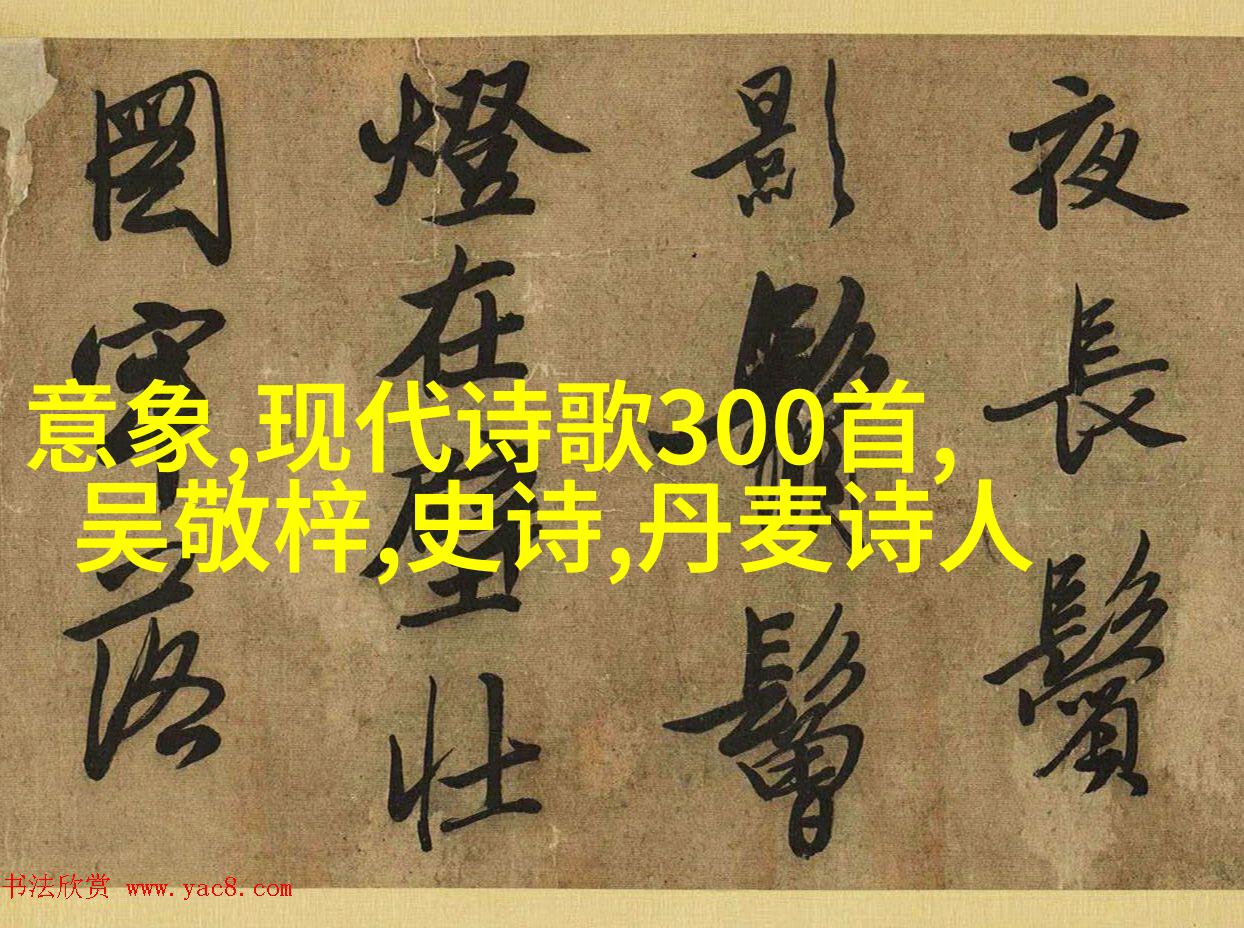 夜長鬢
影鬅鬙
燈在壁壯
圖牢落
意象,现代诗歌300首,
吴敬梓,史诗,丹麦诗人
书法欣赏 www.yac8.com